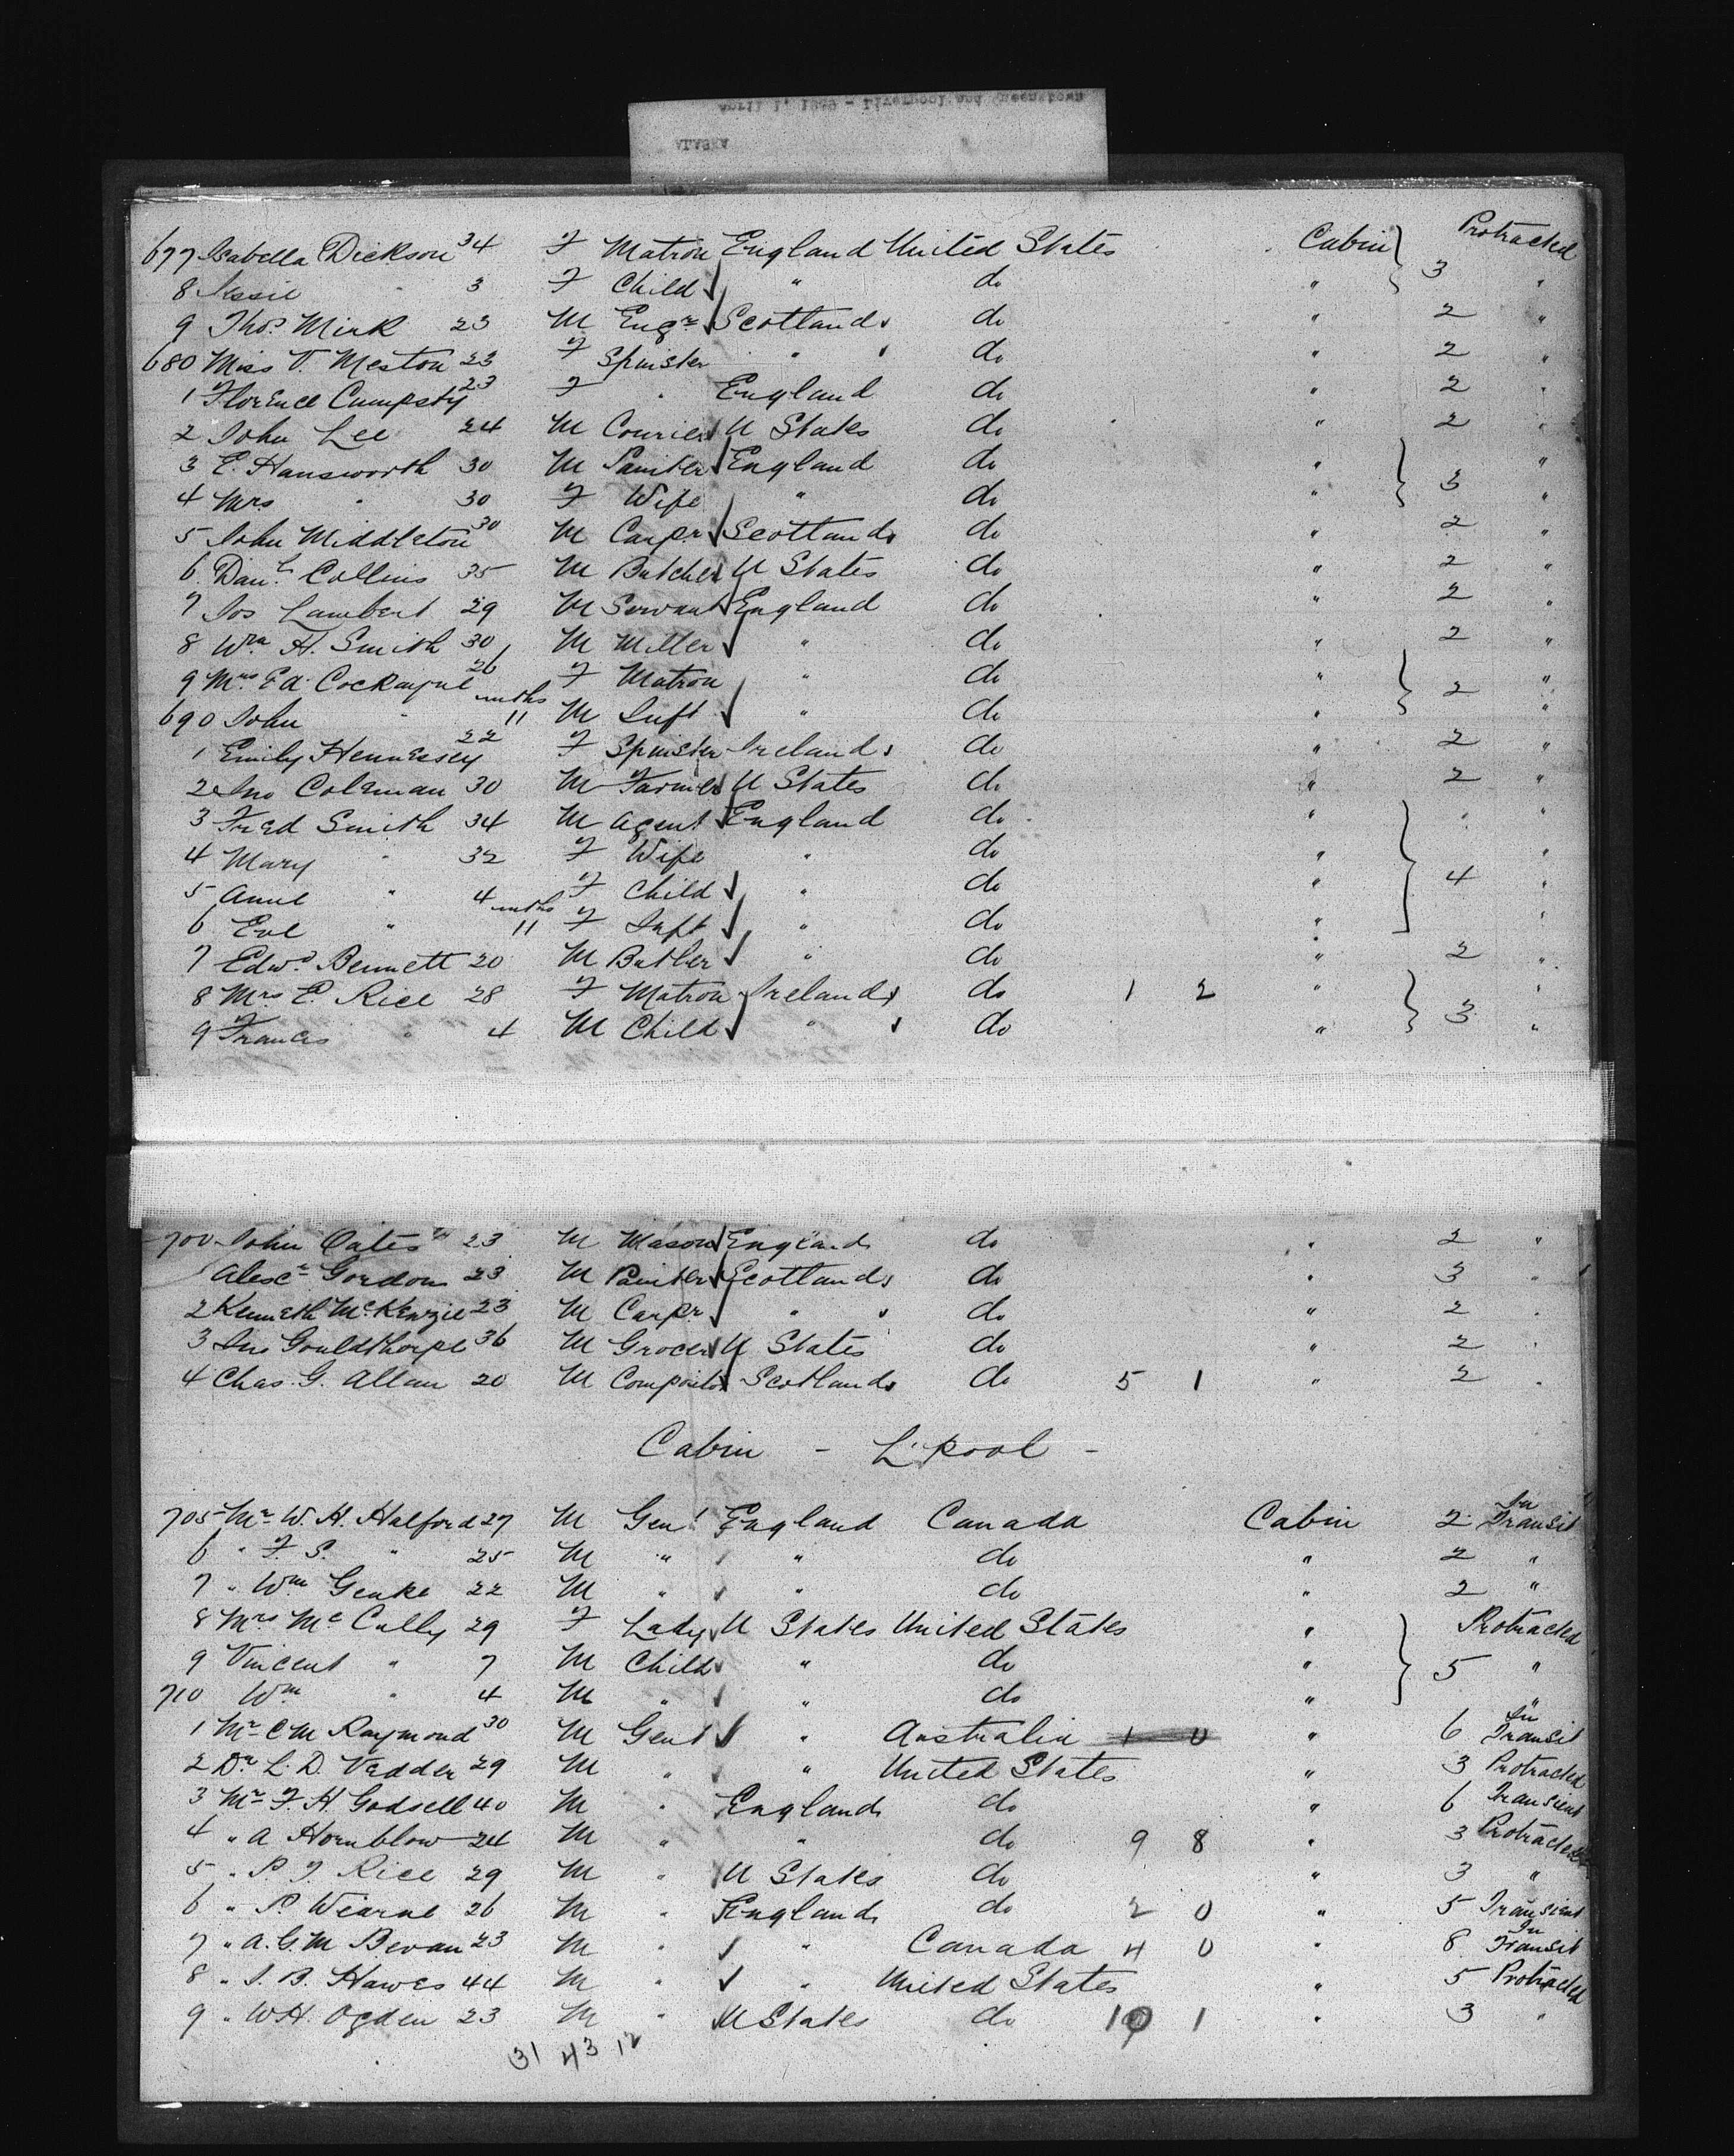 April 1, 1889 - Liverpool and Queenstown
ALASKA
677 Isabella Dickson 34 F Matron England United States Cabin 3 Protracted
8 Jessie " 3 F Child " do " "
9 Thos. Mirk 23 M Engr Scotland do " 2 "
680 Miss V. Meston 23 F Spinster " do " 2 "
1 Florence Cumpsty 23 F " England do " 2 "
2 John Lee 24 M Courier U States do " 2 "
3 E. Hansworth 30 M Painter England do " 3 "
4 Mrs " 30 F Wife " do " "
5 John Middleton 30 M Carpr Scotland do " 2 "
6 Danl. Collins 35 M Butcher U States do " 2 "
7 Jos Lambert 29 M Servant England do " 2 "
8 Wm H. Smith 30 M Miller " do " 2 "
9 Mrs Ed. Cockayne 26 F Matron " do " 2 "
690 John " 11 mths M Inft " do " "
1 Emily Hennessey 22 F Spinster Ireland do " 2 "
2 Jno Coleman 30 M Farmer U States do " 2 "
3 Fred Smith 34 M Agent England do " "
4 Mary " 32 F Wife " do " "
5 Annie " 4 F Child " do " 4 "
6 Eve " 11 mths F Inft " do " "
7 Edwd. Bennett 20 M Butler " do " 2 "
8 Mrs E. Rice 28 F Matron Ireland do 1 2 " 3 "
9 Francis " 4 M Child " do " "
700 John Oates 23 M Mason England do " 2 "
Alexr Gordon 23 M Painter Scotland do " 3 "
2 Kenneth McKenzie 23 M Carpr " do " 2 "
3 Jno Gouldthorpe 36 M Grocer U States do " 2 "
4 Chas. G. Allan 20 M Compositor Scotland do 5 1 " 2 "
Cabin - L'pool -
705 Mr W. H. Halford 27 M Gent England Canada Cabin 2 In Transit
6 " F. S. " 25 M " " do " 2 "
7 " Wm Genke 22 M " " do " 2 "
8 Mrs McCully 29 F Lady U States United States " Protracted
9 Vincent " 7 M Child " do " 5 "
710 Wm " 4 M " " do " "
1 Mr C M Raymond 30 M Gent " Australia 1 0 " 6 In Transit
2 Dr L. D. Vedder 29 M " " United States " 3 Protracted
3 Mr F. H. Godsell 40 M " England do " 6 Transient
4 " A Hornblow 24 M " " do 9 8 " 3 Protracted
5 " P. J. Rice 29 M " U States do " 3 "
6 " P. Wearne 26 M " England do 2 0 " 5 Transient
7 " A. G. M Bevan 23 M " " Canada 4 0 " 8 In Transit
8 " J. B. Hawes 44 M " " United States " 5 Protracted
9 " W H. Ogden 23 M " U States do 10 1 " 3 "
31 43 12